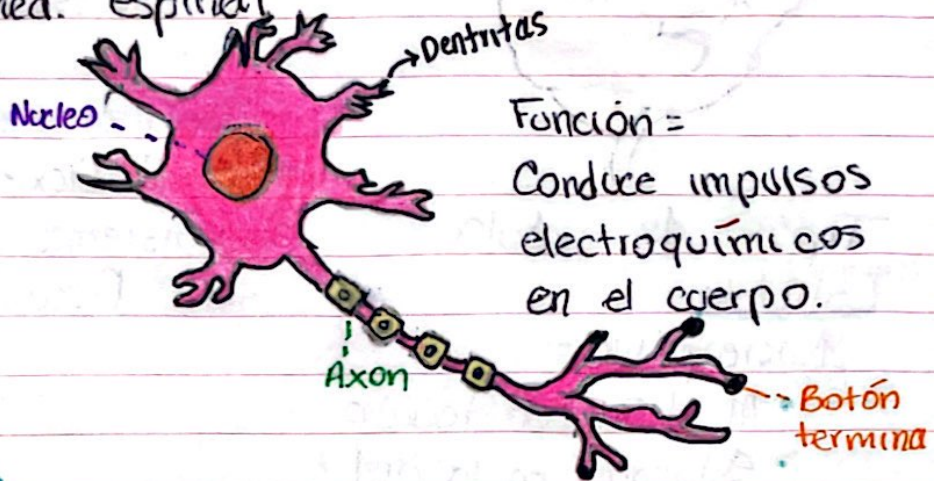 espinal
Dentritas
Nucleo
Función =
Conduce impulsos
electroquímicos
en el cuerpo.
Axon
Botón
termina